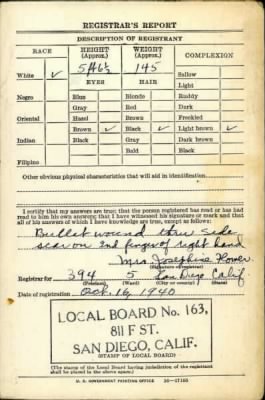 REGISTRAR'S REPORT
DESCRIPTION OF REGISTRANT
RACE HEIGHT (Approx.) WEIGHT (Approx.) COMPLEXION
5 ft 6½ 145
White ✓ Sallow
EYES HAIR Light
Negro Blue Blonde Ruddy
Gray Red Dark
Oriental Hazel Brown Freckled
Brown ✓ Black ✓ Light brown ✓
Indian Black Gray Dark brown
Bald Black
Filipino
Other obvious physical characteristics that will aid in identification
I certify that my answers are true; that the person registered has read or has had read to him his own answers; that I have witnessed his signature or mark and that all of his answers of which I have knowledge are true, except as follows:
Bullet wound thru side
scar on 2nd finger of right hand
Mrs. Josephine
(Signature of registrar)
Registrar for 394 5 San Diego Calif.
(Precinct) (Ward) (City or county) (State)
Date of registration Oct. 16, 1940
LOCAL BOARD No. 163,
811 F ST.
SAN DIEGO, CALIF.
(STAMP OF LOCAL BOARD)
(The stamp of the Local Board having jurisdiction of the registrant shall be placed in the above space.)
U. S. GOVERNMENT PRINTING OFFICE 16—17105